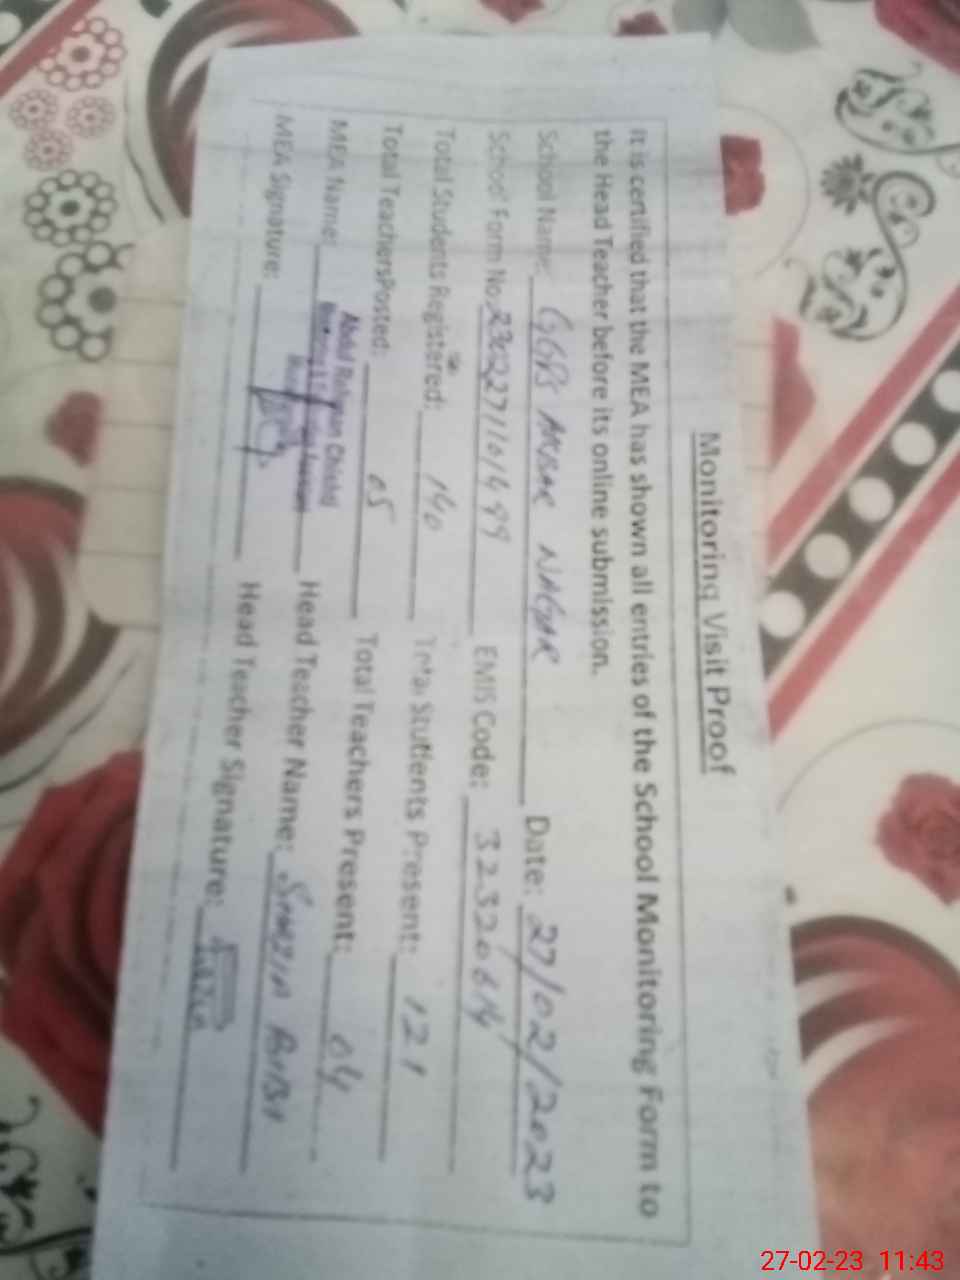 Monitoring Visit Proof
It is certified that the MEA has shown all entries of the School Monitoring Form to
the Head Teacher before its online submission.
School Name: GGPS AKBAR NAGAR Date: 27/02/2023
School Form No: EMIS Code:
Total Students Registered: 140 Total Students Present: 121
Total TeachersPosted: 05 Total Teachers Present: 04
MEA Name: Abdul Rehman Head Teacher Name: BiBi
MEA Signature: Head Teacher Signature:
27-02-23 11:43